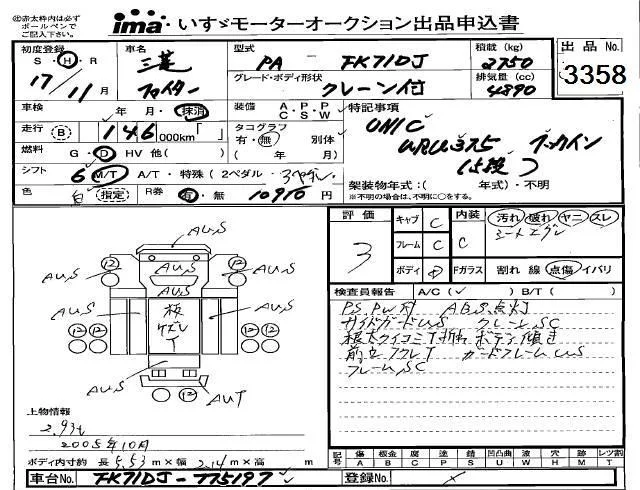 ㊟赤太枠内は必ず
ボールペンで
ご記入下さい。
ima いすゞモーターオークション出品申込書
初度登録 車名 型式 積載(kg) 出品No.
S・H・R 三菱 PA - FK71DJ 2750
17年11月 ファイター グレード・ボディ形状 クレーン付 排気量(cc) 4890 3358
車検 年・月・抹消 装備 A・P・P C・S・W 特記事項
走行 B 146 000km「 」 タコグラフ 有・無 別体 UNIC
(年/月) URU375 フックイン
燃料 G・D・HV 他( ) 15段
シフト 6 M/T A/T・特殊(2ペダル・3ペダル)
架装物年式:( 年式)・不明
色 白 指定 R券 有・無 10910円 ※不明の場合は、不明に○をする。
評価 キャブ C 内装 汚れ 破れ ヤニ スレ
3 フレーム C C シートエグレ
ボディ D Fガラス 割れ 線 点傷 イバリ
検査員報告 A/C(✓) B/T( )
P.S. P.W. 付 A.B.S.点灯
サイドガードUS クレーンSC
根太クイコミT折れ ボディ傾き
前立フクレT ガードフレームUS
フレームSC
AU.S
12 AU.S 12
AU.S AU.S
AU.S 板 AU.S
ケズレ
T
12 12 12 12
AU.S AU.S
12 AUT
上物情報
2.93t
2005年10月
ボディ内寸約 長 5.53 m×幅 2.14 m×高 m
記号 傷 板金 腐 塗 錆 凹凸曲 波 穴 跡 補修跡 レツ割
A B C P S U W H M X T
車台No. FK71DJ-775197 登録No.